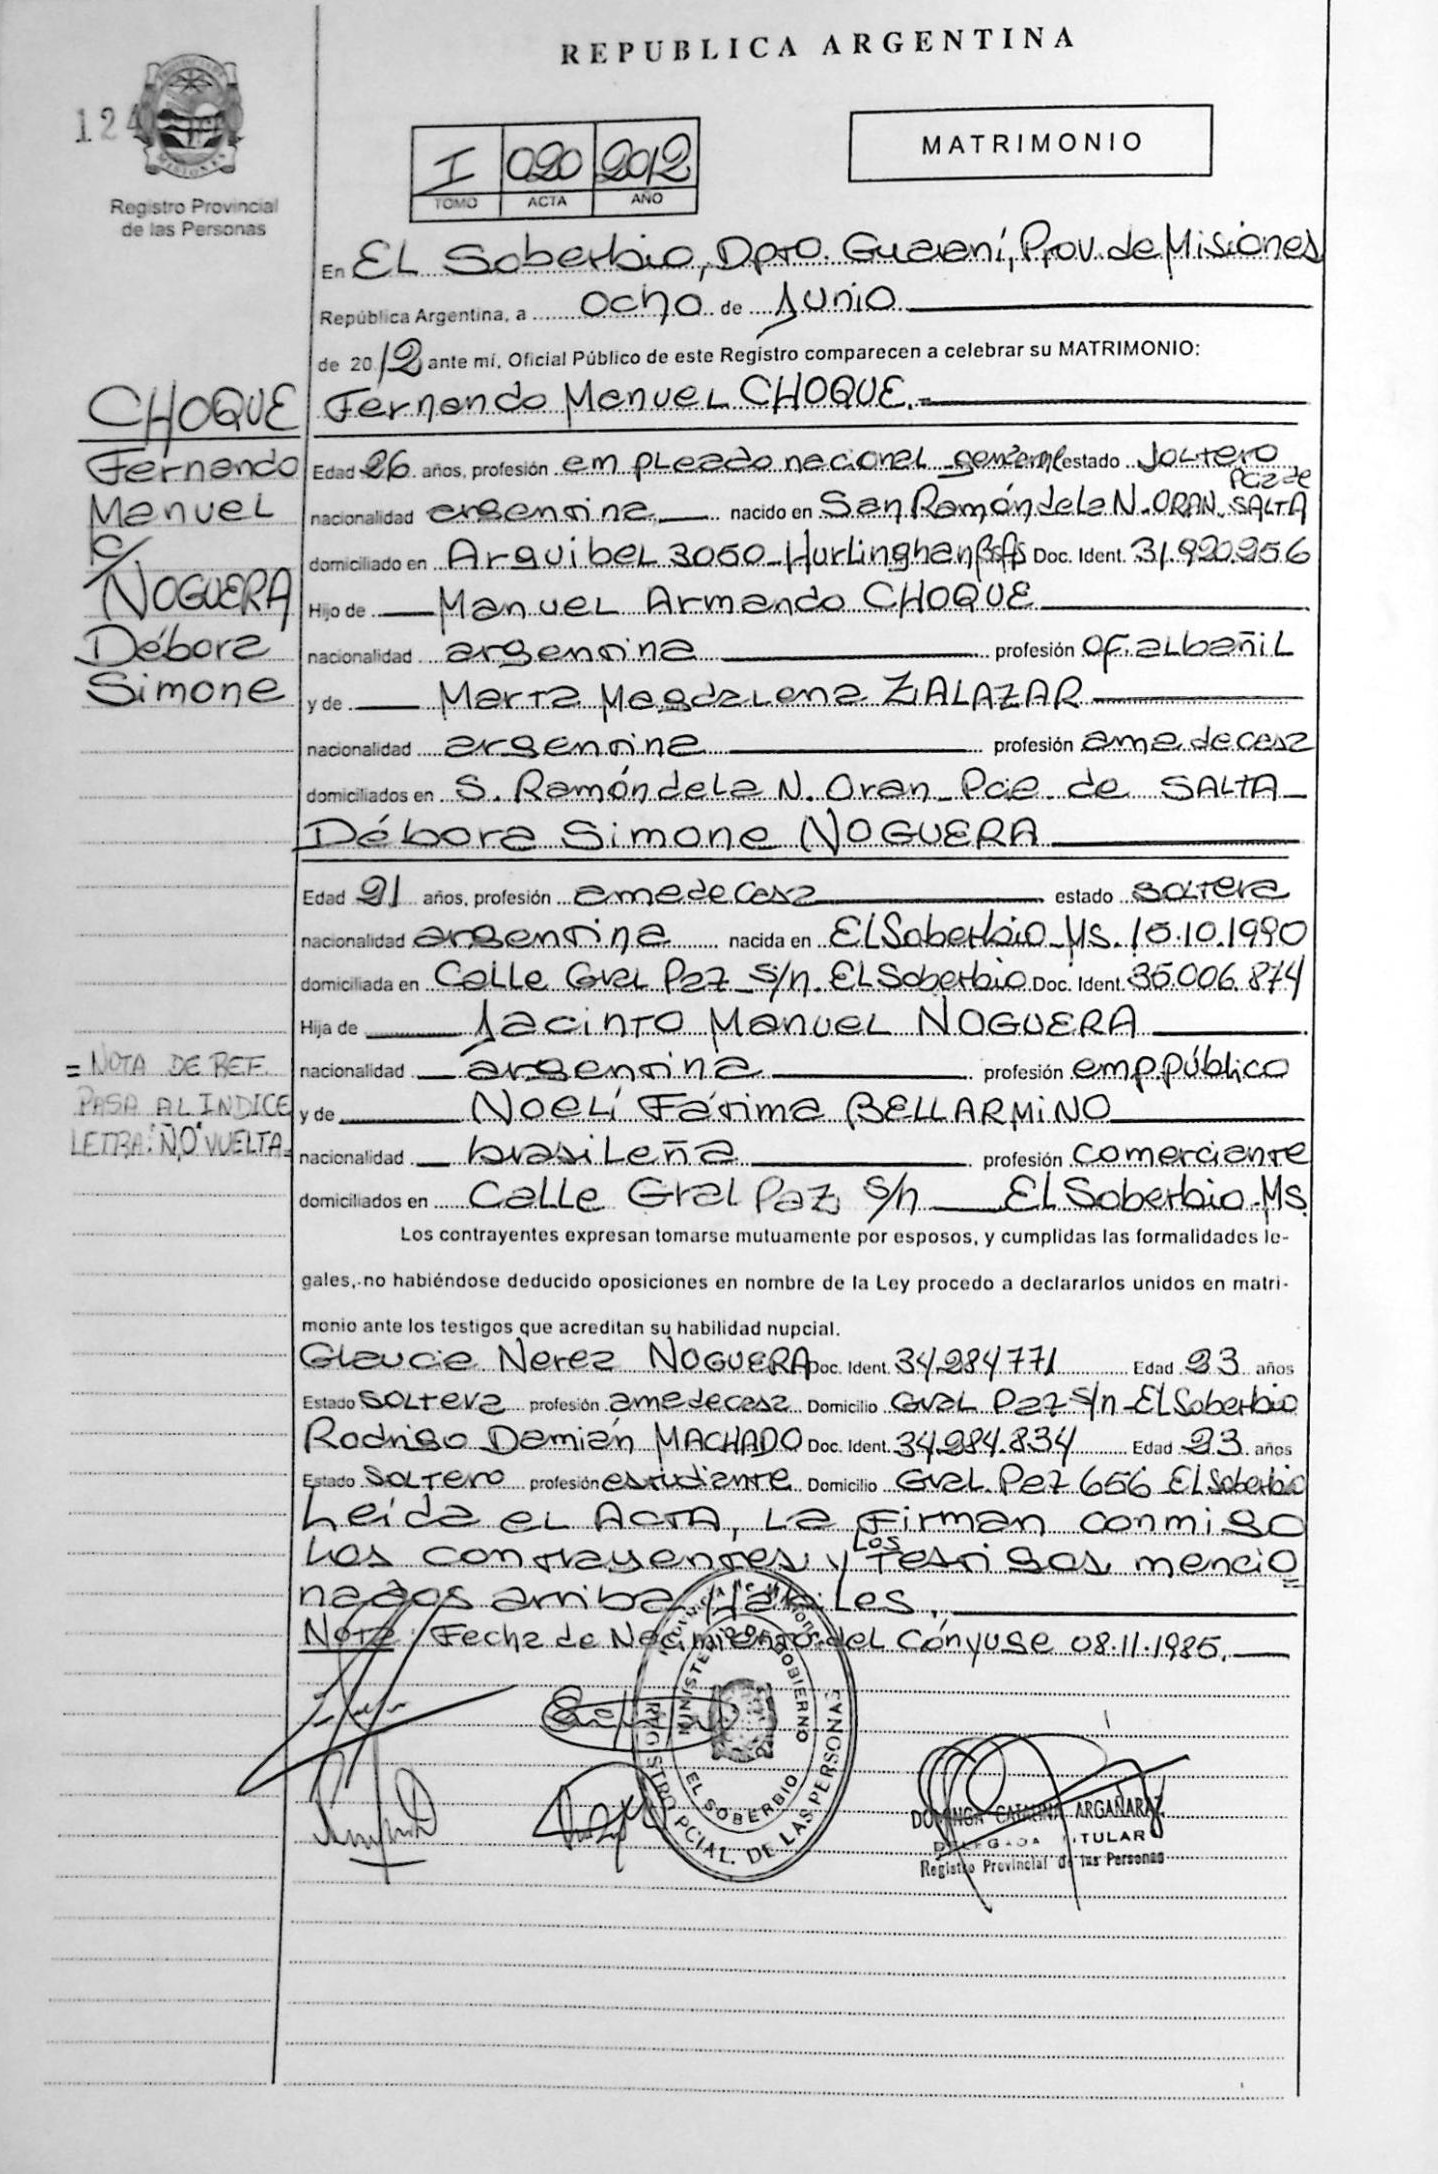 REPUBLICA ARGENTINA
124
MISIONES
Registro Provincial
de las Personas
I 020 2012
TOMO ACTA AÑO
MATRIMONIO
En EL Soberbio, Dpto. Guaraní, Prov. de Misiones
República Argentina, a ocho de Junio
de 2012 ante mí, Oficial Público de este Registro comparecen a celebrar su MATRIMONIO:
CHOQUE
Fernando
Manuel
c/
NOGUERA
Débora
Simone
Fernando Manuel CHOQUE.=
Edad 26 años, profesión empleado nacional general estado soltero
nacionalidad argentina nacido en San Ramón de la N. ORAN. Pcia de SALTA
domiciliado en Arguibel 3050 - Hurlinghan Bs As Doc. Ident. 31.920.256
Hijo de Manuel Armando CHOQUE
nacionalidad argentina profesión of. albañil
y de Marta Magdalena ZALAZAR
nacionalidad argentina profesión ama de casa
domiciliados en S. Ramón de la N. Oran - Pcia de SALTA
Débora Simone NOGUERA
Edad 21 años, profesión ama de casa estado soltera
nacionalidad argentina nacida en El Soberbio Ms. 10.10.1990
domiciliada en Calle Gral Paz s/n. El Soberbio Doc. Ident. 35.006.874
Hija de Jacinto Manuel NOGUERA
nacionalidad argentina profesión emp. público
y de Noelí Fátima BELLARMINO
nacionalidad brasileña profesión comerciante
domiciliados en Calle Gral Paz s/n El Soberbio - Ms.
= NOTA DE REF.
PASA AL INDICE
LETRA: "Ñ,O" VUELTA=
Los contrayentes expresan tomarse mutuamente por esposos, y cumplidas las formalidades le-
gales, no habiéndose deducido oposiciones en nombre de la Ley procedo a declararlos unidos en matri-
monio ante los testigos que acreditan su habilidad nupcial.
Glaucia Nerea NOGUERA Doc. Ident. 34.284771 Edad 23 años
Estado soltera profesión ama de casa Domicilio Gral Paz s/n - El Soberbio
Rodrigo Damián MACHADO Doc. Ident. 34.284.834 Edad 23 años
Estado soltero profesión estudiante Domicilio Gral. Paz 656 El Soberbio
Leída el Acta, la firman conmigo
los contrayentes y los testigos mencio=
nados arriba Hábiles.
Nota: Fecha de Nacimiento del Cónyuge 08.11.1985.
MINISTERIO DE GOBIERNO
EL SOBERBIO
REGISTRO PCIAL. DE LAS PERSONAS
DOMINGA CATALINA ARGAÑARAZ
DELEGADA TITULAR
Registro Provincial de las Personas